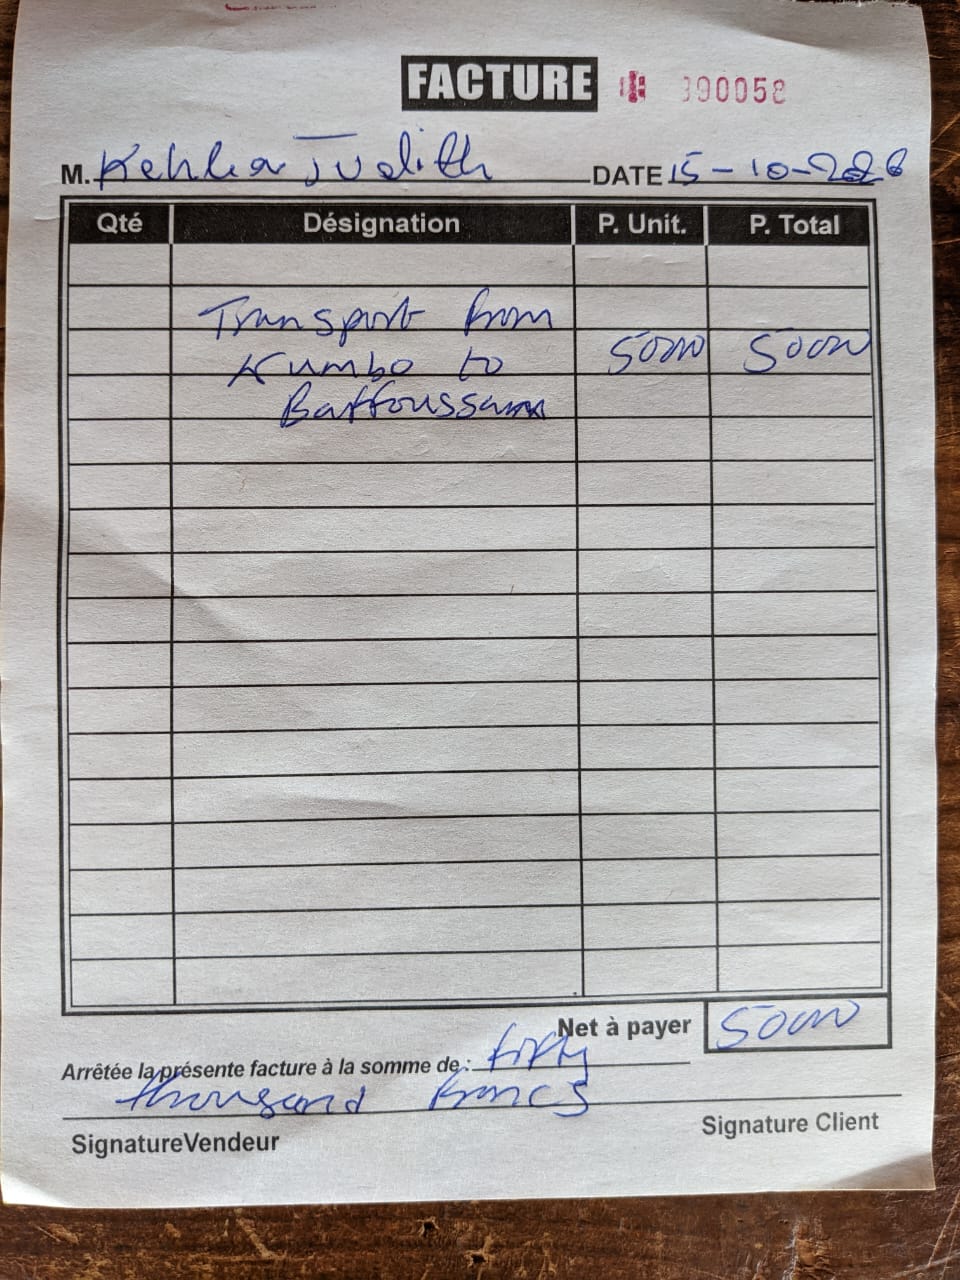 FACTURE 390058
M. Kehla Judith DATE 15-10-2026
Qté Désignation P. Unit. P. Total
Transport from
Kumbo to 50000 50000
Baffoussam
Net à payer 50000
Arrêtée la présente facture à la somme de : fifty
thousand francs
SignatureVendeur Signature Client